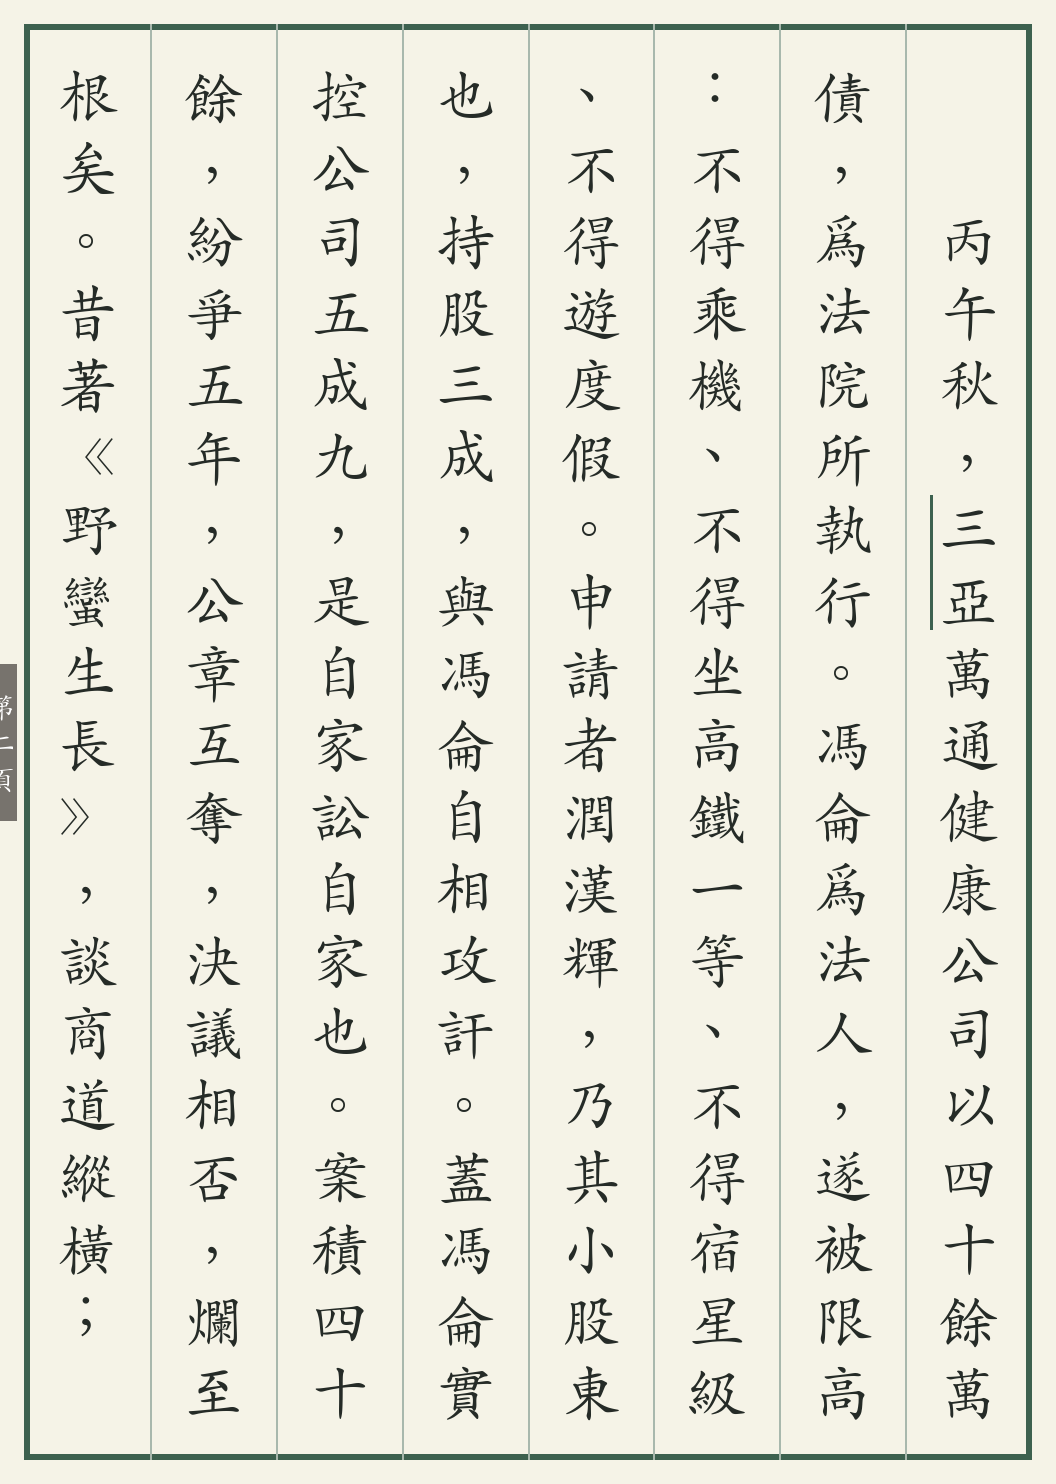 丙午秋，三亞萬通健康公司以四十餘萬
債，爲法院所執行。馮侖爲法人，遂被限高
：不得乘機、不得坐高鐵一等、不得宿星級
、不得遊度假。申請者潤漢輝，乃其小股東
也，持股三成，與馮侖自相攻訐。蓋馮侖實
控公司五成九，是自家訟自家也。案積四十
餘，紛爭五年，公章互奪，決議相否，爛至
根矣。昔著《野蠻生長》，談商道縱橫；